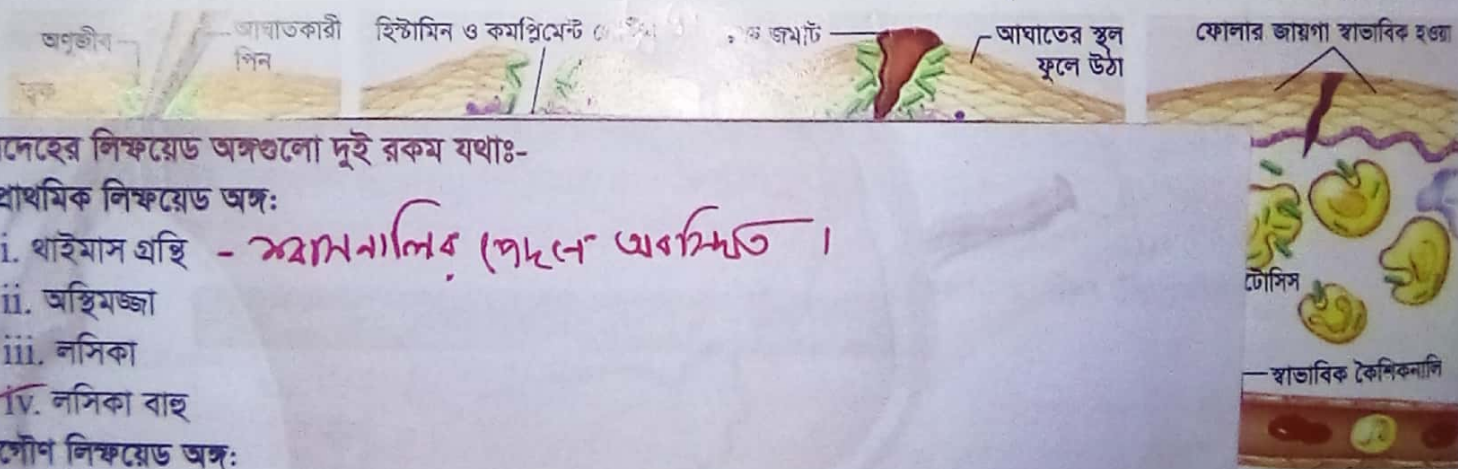 অণুজীব
আঘাতকারী
পিন
ত্বক
হিস্টামিন ও কমপ্লিমেন্ট
জমাট
আঘাতের স্থল
ফুলে উঠা
ফোলার জায়গা স্বাভাবিক হওয়া
দেহের লিম্ফয়েড অঙ্গগুলো দুই রকম যথাঃ-
প্রাথমিক লিম্ফয়েড অঙ্গ:
i. থাইমাস গ্রন্থি - শ্বাসনালির পেছনে অবস্থিত ।
ii. অস্থিমজ্জা
iii. লসিকা
iv. লসিকা বাহু
গৌণ লিম্ফয়েড অঙ্গ:
টোসিস
স্বাভাবিক কৈশিকনালি